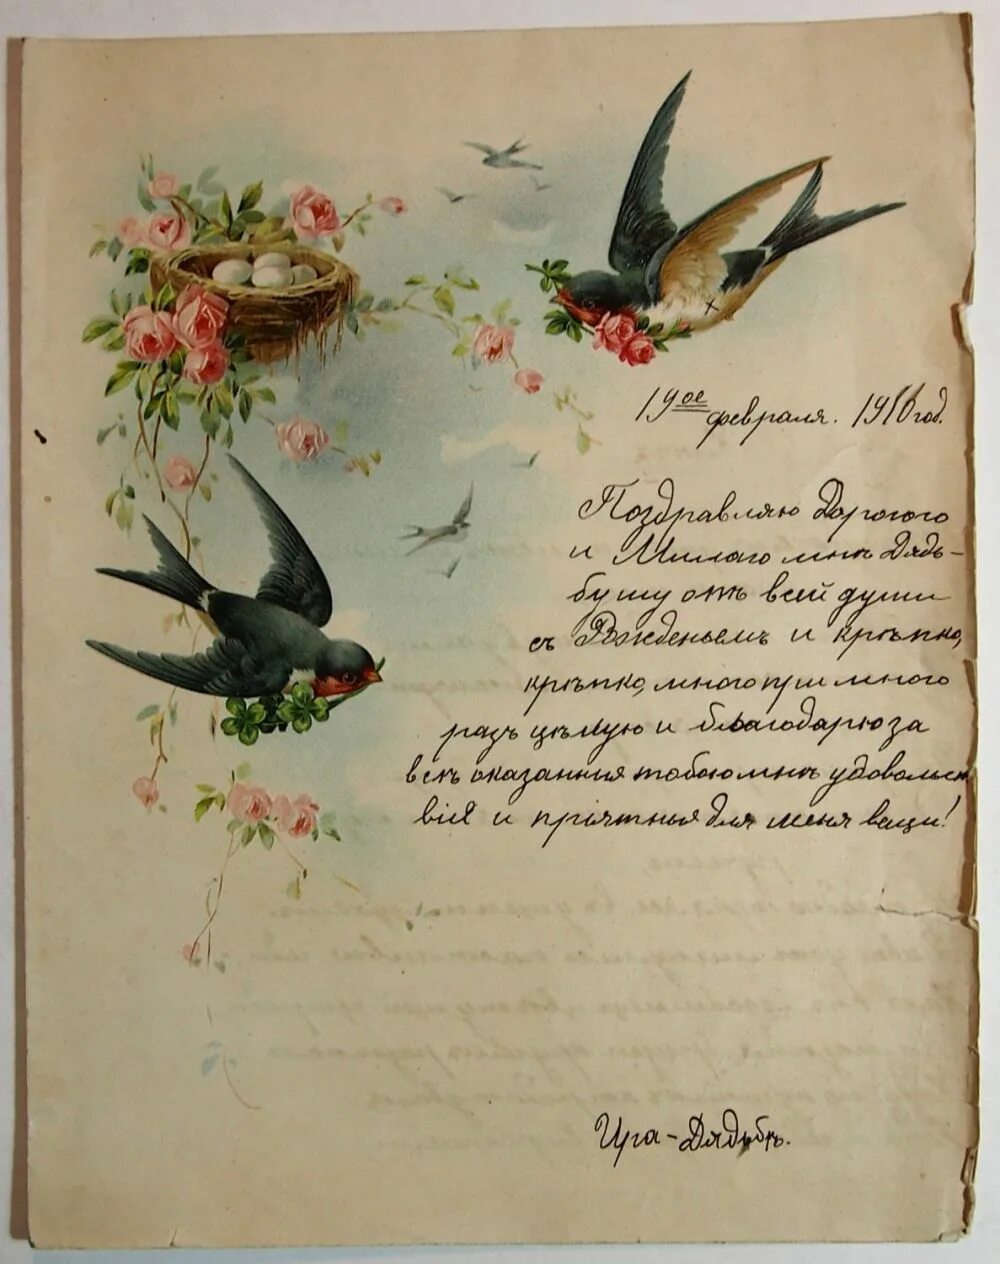 19ое февраля. 1910 год.
Поздравляю Дорогого
и Милаго мнѣ Дядь-
бушу отъ всей души
съ Рожденьемъ и крѣпко,
крѣпко, много при много
разъ цѣлую и благодарю за
всѣ оказанныя тобою мнѣ удовольст
вія и пріятныя для меня вещи!
Ира - Дядьбѣ.